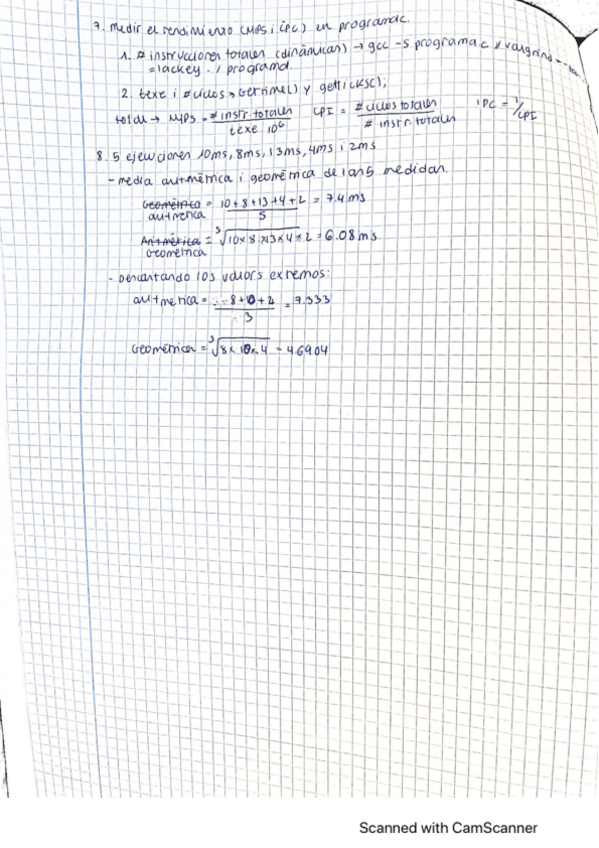 7. Medir el rendimiento (MIPS i CPC) en programac.
1. # instrucciones totales (dinámicas) → gcc -S programa.c // valgrind --
=lackey ./programa.
2. texe i #ciclos → Gettime() y getticks();
total → MIPS = # instr. totales / texe 10^6 CPI = # ciclos totales / # instr. totales IPC = 1/CPI
8. 5 ejecuciones 10ms, 8ms, 13ms, 4ms i 2ms
- media aritmética i geométrica de las 5 medidas.
Geométrica aritmética = 10+8+13+4+2 / 5 = 7.4 ms
Aritmética Geométrica = 5√10×8×13×4×2 = 6.08 ms
- Descartando los valors extremos:
aritmética = 8+10+4 / 3 = 7.333
Geométrica = 3√8×10×4 = 4.6904
Scanned with CamScanner